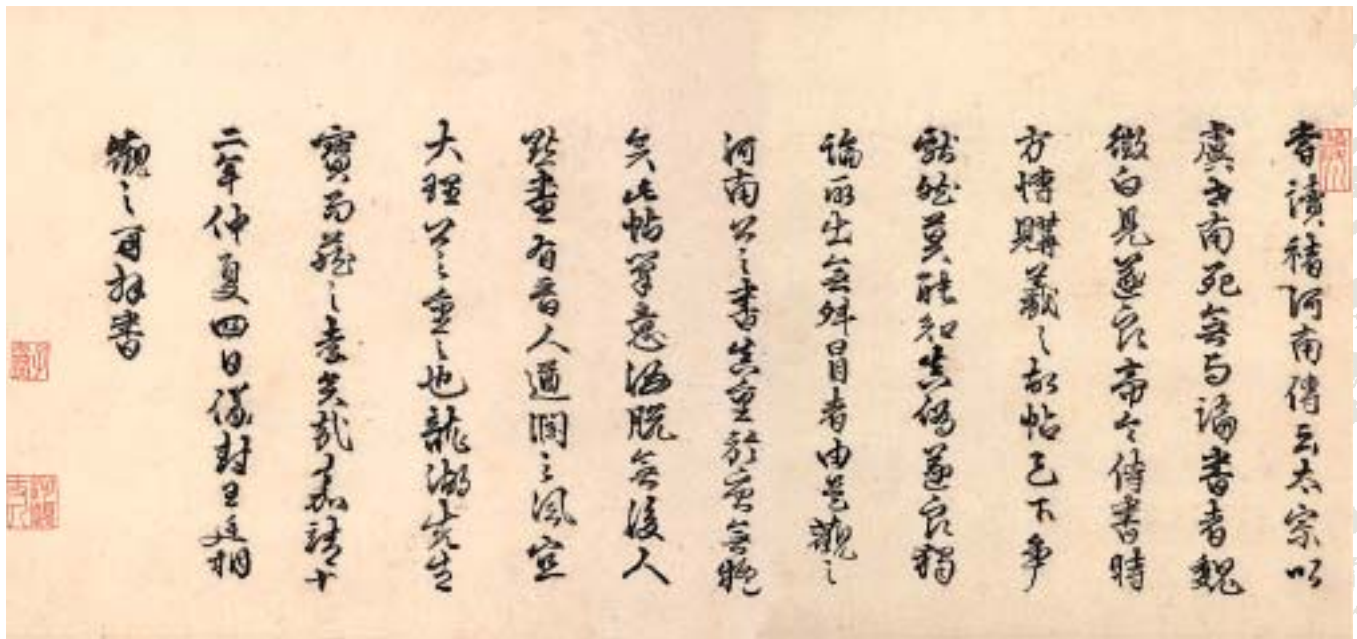 讀褚河南傳云太宗以
虞世南死無与論書者魏
徵白見遂良帝令侍書時
方博購羲之故帖天下爭
獻然莫能知真偽遂良獨
論所出無舛冒者由是觀之
河南公之書其重於無
矣此帖筆意灑脫無後人
點畫有晉人遒潤之風宜
大理公之重之也龍湖先生
寶而藏之孝矣哉嘉靖十
二年仲夏四日儀封王廷相
觀之再拜書